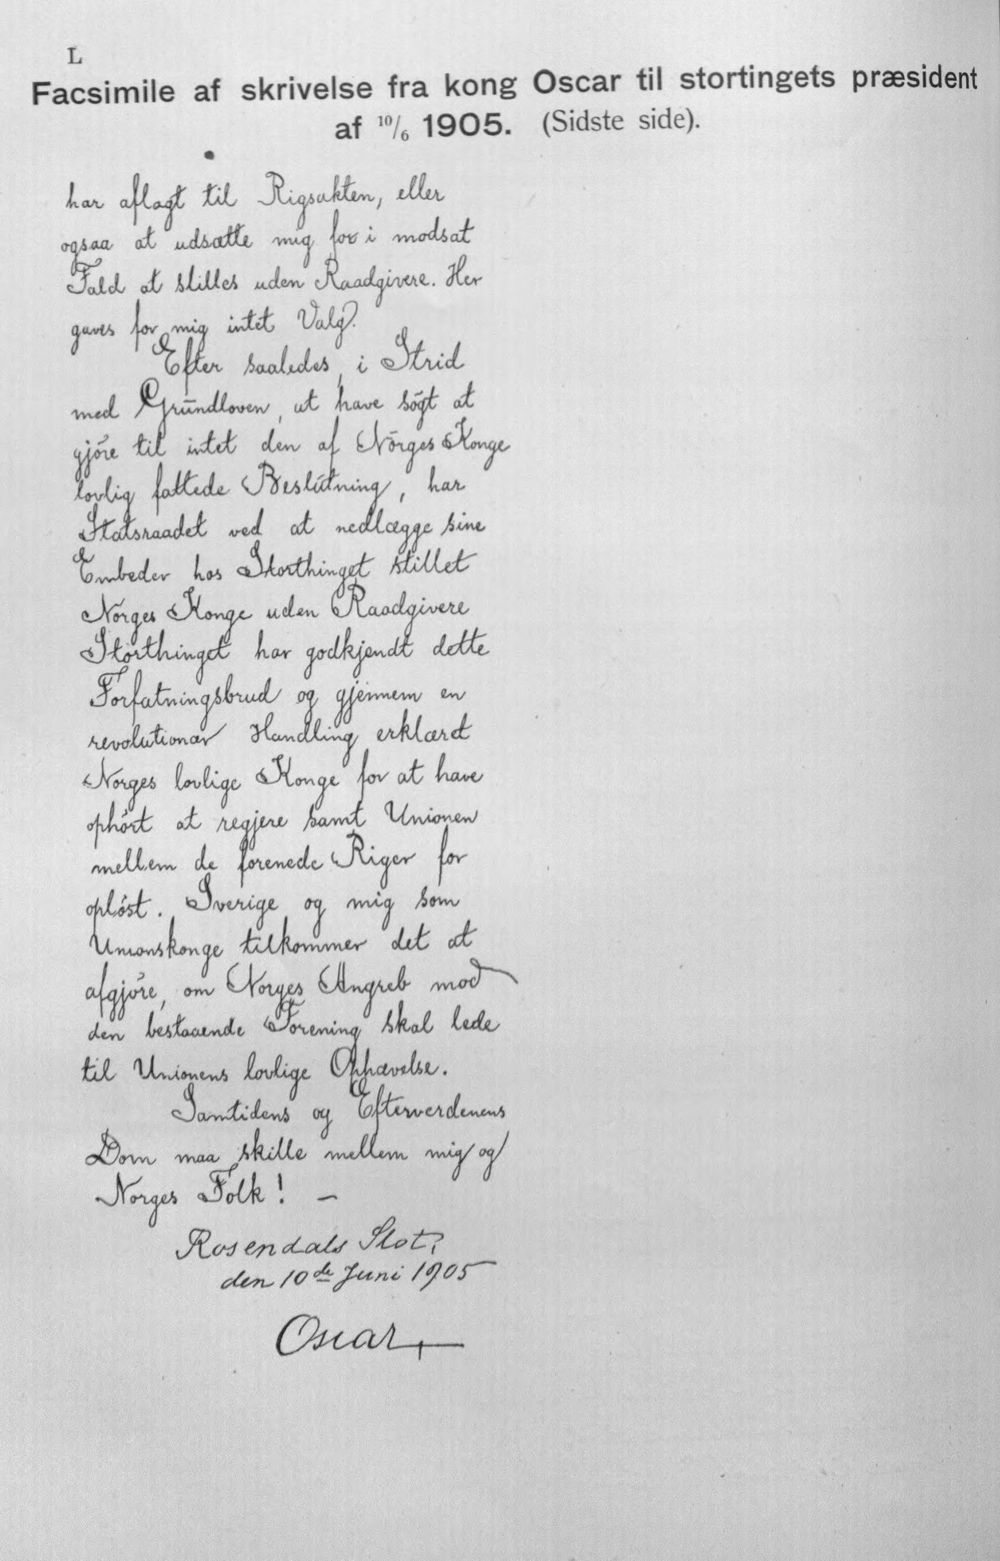 L
Facsimile af skrivelse fra kong Oscar til stortingets præsident
af 10/6 1905. (Sidste side).
har aflagt til Rigsakten, eller
ogsaa at udsætte mig for i modsat
Fald at stilles uden Raadgivere. Her
gaves for mig intet Valg.
Efter saaledes, i Strid
med Grundloven, at have sögt at
gjöre til intet den af Nörges Konge
lovlig fattede Beslutning, har
Statsraadet ved at nedlægge sine
Embeder hos Storthinget stillet
Norges Konge uden Raadgivere
Storthinget har godkjendt dette
Forfatningsbrud og gjennem en
revolutionær Handling erklæret
Norges lovlige Konge for at have
ophört at regjere samt Unionen
mellem de forenede Riger for
oplöst. Sverige og mig som
Unionskonge tilkommer det at
afgjöre, om Norges Angreb mod
den bestaaende Forening skal lede
til Unionens lovlige Ophævelse.
Samtidens og Efterverdenens
Dom maa skille mellem mig og
Norges Folk! —
Rosendals Slot,
den 10de Juni 1905
Oscar